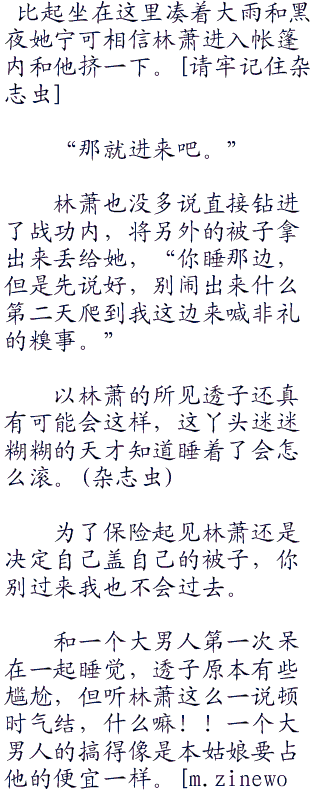 比起坐在这里凑着大雨和黑
夜她宁可相信林萧进入帐篷
内和他挤一下。[请牢记住杂
志虫]
“那就进来吧。”
林萧也没多说直接钻进
了战功内，将另外的被子拿
出来丢给她，“你睡那边，
但是先说好，别闹出来什么
第二天爬到我这边来喊非礼
的糗事。”
以林萧的所见透子还真
有可能会这样，这丫头迷迷
糊糊的天才知道睡着了会怎
么滚。(杂志虫)
为了保险起见林萧还是
决定自己盖自己的被子，你
别过来我也不会过去。
和一个大男人第一次呆
在一起睡觉，透子原本有些
尴尬，但听林萧这么一说顿
时气结，什么嘛！！一个大
男人的搞得像是本姑娘要占
他的便宜一样。[m.zinewo